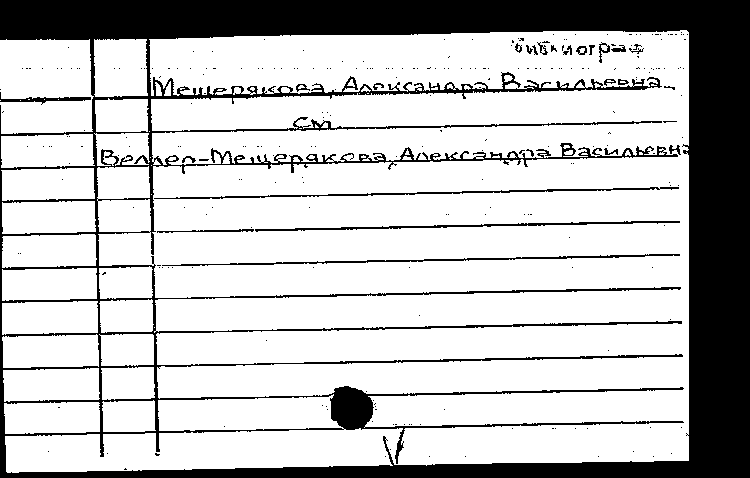 библиограф
Мещерякова, Александра Васильевна
см.
Веллер-Мещерякова, Александра Васильевна